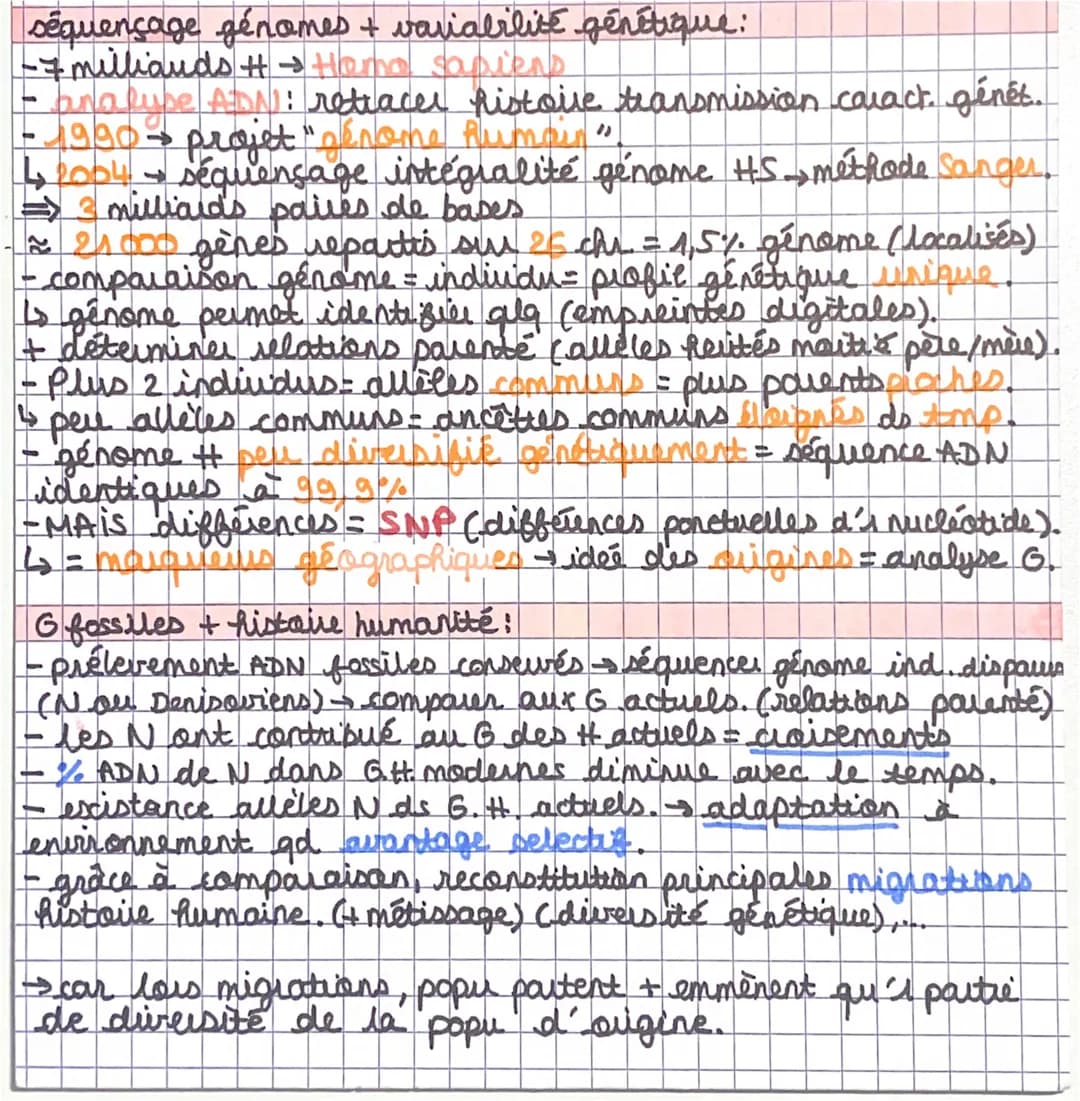 séquençage génomes + variabilité génétique :
- 7 milliards H → Homo sapiens
- analyse ADN : retracer histoire transmission caract. génét.
- 1990 → projet "génome humain".
↳ 2004 → séquençage intégralité génome HS → méthode Sanger.
⇒ 3 milliards paires de bases
≈ 21 000 gènes repartis sur 26 chr = 1,5% génome (localisés)
- comparaison génome = individu = profil génétique unique.
↳ génome permet identifier qlq (empreintes digitales).
+ déterminer relations parenté (allèles hérités moitié père/mère).
- Plus 2 individus = allèles communs = plus parents proches.
↳ peu allèles communs = ancêtres communs éloignés ds tmp.
- génome H peu diversifié génétiquement = séquence ADN
identiques à 99,9%
- MAIS différences = SNP (différences ponctuelles d'1 nucléotide).
↳ = marqueurs géographiques → idée des origines = analyse G.
G fossiles + histoire humanité :
- prélevement ADN fossiles conservés → séquencer génome ind. disparus
(N ou Denisoviens) → comparer aux G actuels. (relations parenté)
- les N ont contribué au G des H actuels = croisements
- % ADN de N dans G.H. modernes diminue avec le temps.
- existance allèles N ds G. H. actuels. → adaptation à
environnement qd avantage selectif.
- grâce à comparaison, reconstitution principales migrations
histoire humaine. (+ métissage) (diversité génétique),...
→ car lors migrations, popu partent + emmènent qu'1 partie
de diversité de la popu d'origine.